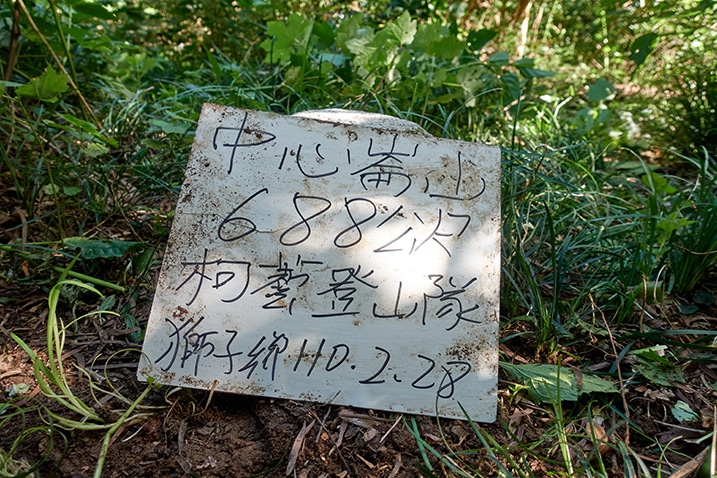 中心崙山
688公尺
柯藝登山隊
獅子鄉110.2.28